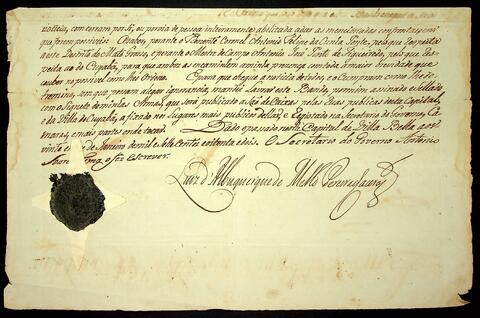 noticia, con terram por si, ou por via de pessoa inteiramente abilitada a dar as mencionadas informaçoens
que forem possiveis: A saber, perante o Thenente Coronel Antonio Felipe da Cunha Ponte, pelo que respeita
a este Destrito do Mato Grosso, e perante o Mestre de Campo Antonio José Pinto de Figueiredo, pelo que res-
peita ao do Cuyabá, para que ambos as encaminhem a minha prezença com toda a maior brevidade que
couber no possivel como lhes Ordeno. E para que chegue a noticia de todos, e o Cumpram como lhes de-
termino, sem que possam alegar ignorancia, mandei Lavrar este Bando, por mim asinado e sellado
com o Signete de minhas Armas, que será publicado a Son de Caixas pelas Ruas publicas desta Capital,
e da Villa do Cuyabá, a fixado nos Lugares mais publicos dellas, e Registado na Secretaria do Governo, Ca-
maras, e mais partes onde tocar. Dado e passado nesta Capital de Villa Bella aos
vinte e de Janeiro de mil e Sete Centos e oitenta e dois. O Secretario do Governo Antonio
o fes Escrever.
Luiz d'Albuquerque de Mello Pereira e Caceres